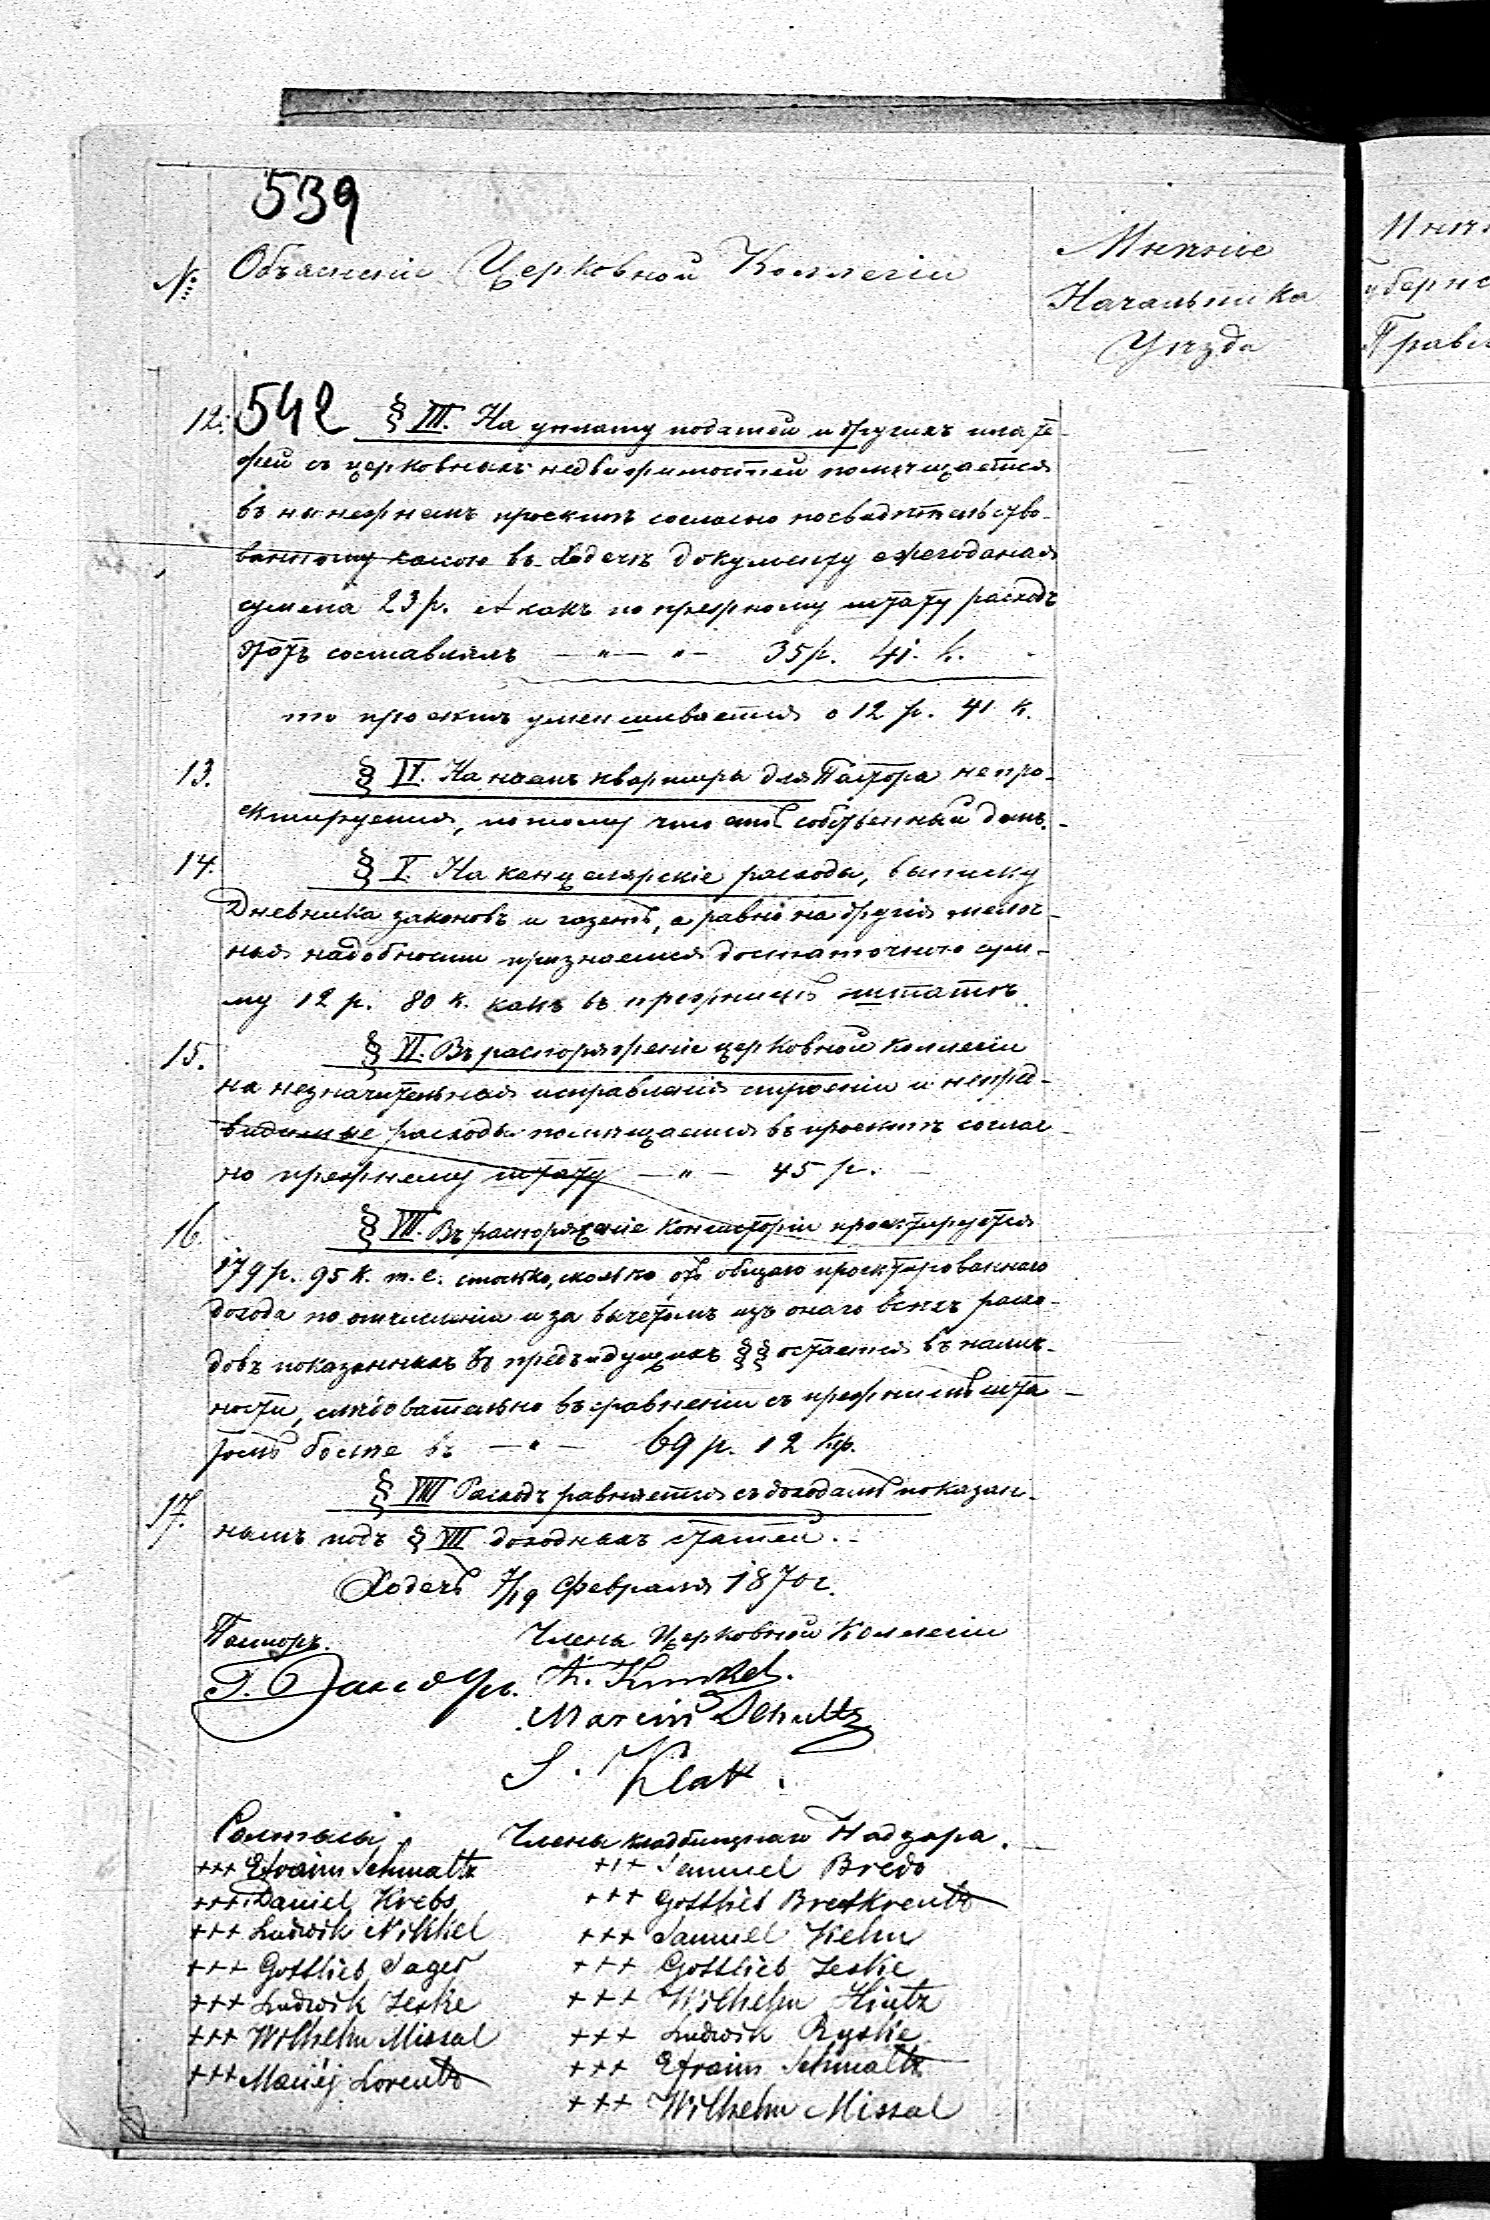 539
№ Объясненіе Церковной Коллегіи
Мнѣніе
Начальника
Уѣзда
12. 542 § III. На уплату податей и другихъ плате-
жей съ церковныхъ недвижимостей помѣщается
въ нынѣжнемъ проектѣ согласно посвидѣтельство-
ванному гминою въ Ходечѣ документу ежегодная
сумма 23 р. А какъ по прежному штату расходъ
этотъ составлялъ — " — " — 35 р. 41 к.
то проектъ уменшивается о 12 р. 41 к.
13. § IV. На наемъ квартиры для Пастора непро-
ектируется, потому что есть собственный домъ.
14. § V. На канцелярскіе расходы, выписку
Дневника законовъ и газетъ, а равно на другія мелоч-
ныя надобности признается достаточною сум-
му 12 р. 80 к. какъ въ прежнемъ штатѣ.
15. § VI. Въ распоряженіе церковной коллегіи
на незначительныя исправленія строеніи и непред-
видимые расходы помѣщается въ проектѣ соглас-
но прежнему штату — " — 45 р.
16. § VII. Въ распоряженіе Консисторіи проектируется
179 р. 95 к. т. е. столько, сколько отъ общаго проектированнаго
дохода по отчисленіи и за вычетомъ изъ онаго всѣхъ расхо-
довъ показанныхъ въ предъидущихъ §§ остается въ налич-
ности, слѣдовательно въ сравненіи съ прежнимъ шта-
томъ болѣе въ — " — 69 р. 12 кр.
17. § VIII Расходъ равняется съ доходомъ показан-
нымъ подъ § VII доходныхъ статей.
Ходечъ 7/19 Февраля 1870 г.
Пасторъ. Члены Церковной Коллегіи
K. Kunkel.
Marcin Schultz
S. Klatt.
Солтысы Члены кладбищнаго Надзора.
+++ Efraim Schmaltz +++ Samuel Bredo
+++ Daniel Krebs +++ Gottlieb Bretkreutz
+++ Ludwik Nikkel +++ Samuel Kelm
+++ Gottlieb Jager +++ Gottlieb Jeske
+++ Ludwik Jeske +++ Wilhelm Hintz
+++ Wilhelm Missal +++ Ludwik Ryske
+++ Maciéj Lorentz +++ Efraim Schmaltz
+++ Wilhelm Missal